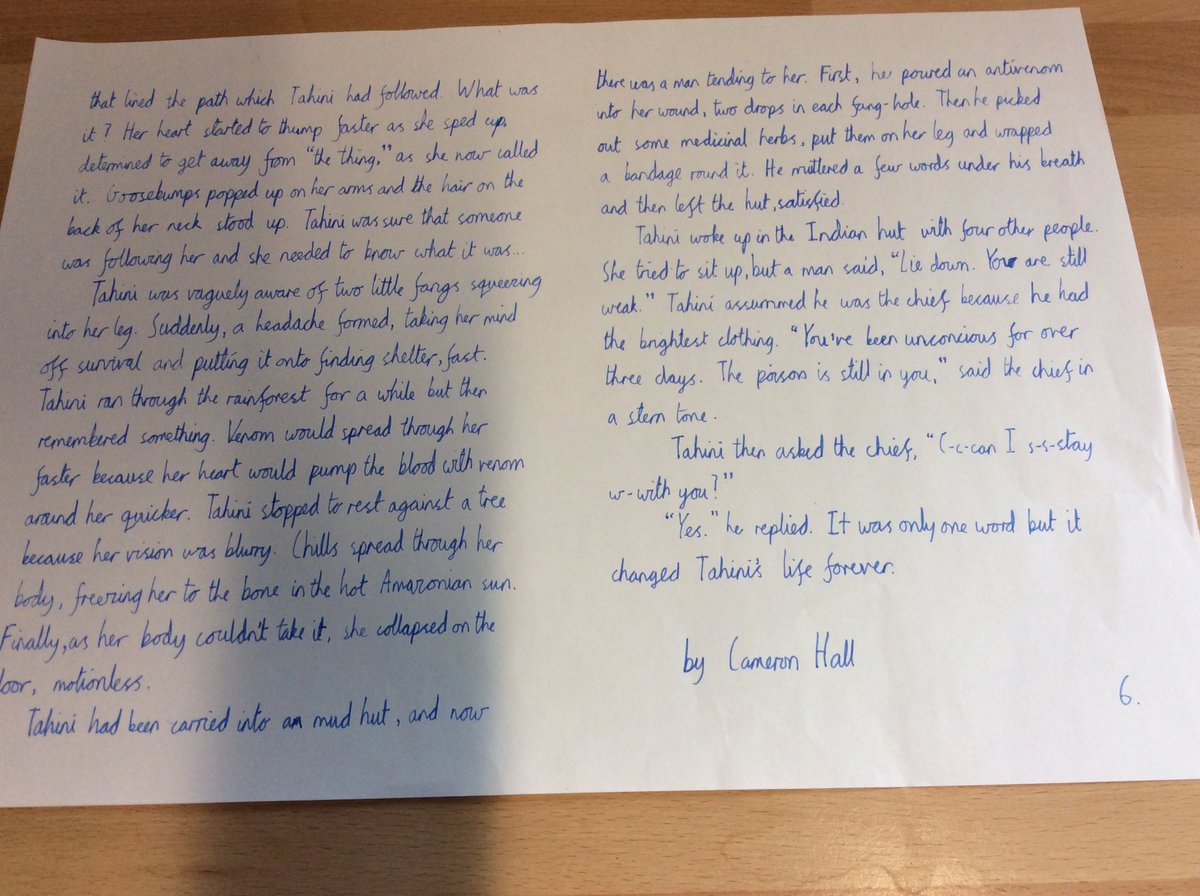 that lined the path which Tahini had followed. What was
it? Her heart started to thump faster as she sped up,
determined to get away from "the thing," as she now called
it. Goosebumps popped up on her arms and the hair on the
back of her neck stood up. Tahini was sure that someone
was following her and she needed to know what it was...
Tahini was vaguely aware of two little fangs squeezing
into her leg. Suddenly, a headache formed, taking her mind
off survival and putting it onto finding shelter, fast.
Tahini ran through the rainforest for a while but then
remembered something. Venom would spread through her
faster because her heart would pump the blood with venom
around her quicker. Tahini stopped to rest against a tree
because her vision was blurry. Chills spread through her
body, freezing her to the bone in the hot Amazonian sun.
Finally, as her body couldn't take it, she collapsed on the
loor, motionless.
Tahini had been carried into a mud hut, and now
there was a man tending to her. First, he poured an antivenom
into her wound, two drops in each fang-hole. Then he picked
out some medicinal herbs, put them on her leg and wrapped
a bandage round it. He muttered a few words under his breath
and then left the hut, satisfied.
Tahini woke up in the Indian hut with four other people.
She tried to sit up, but a man said, "Lie down. You are still
weak." Tahini assummed he was the chief because he had
the brightest clothing. "You've been unconcious for over
three days. The poison is still in you," said the chief in
a stern tone.
Tahini then asked the chief, "C-c-can I s-s-stay
w-with you?"
"Yes." he replied. It was only one word but it
changed Tahini's life forever.
by Cameron Hall
6.